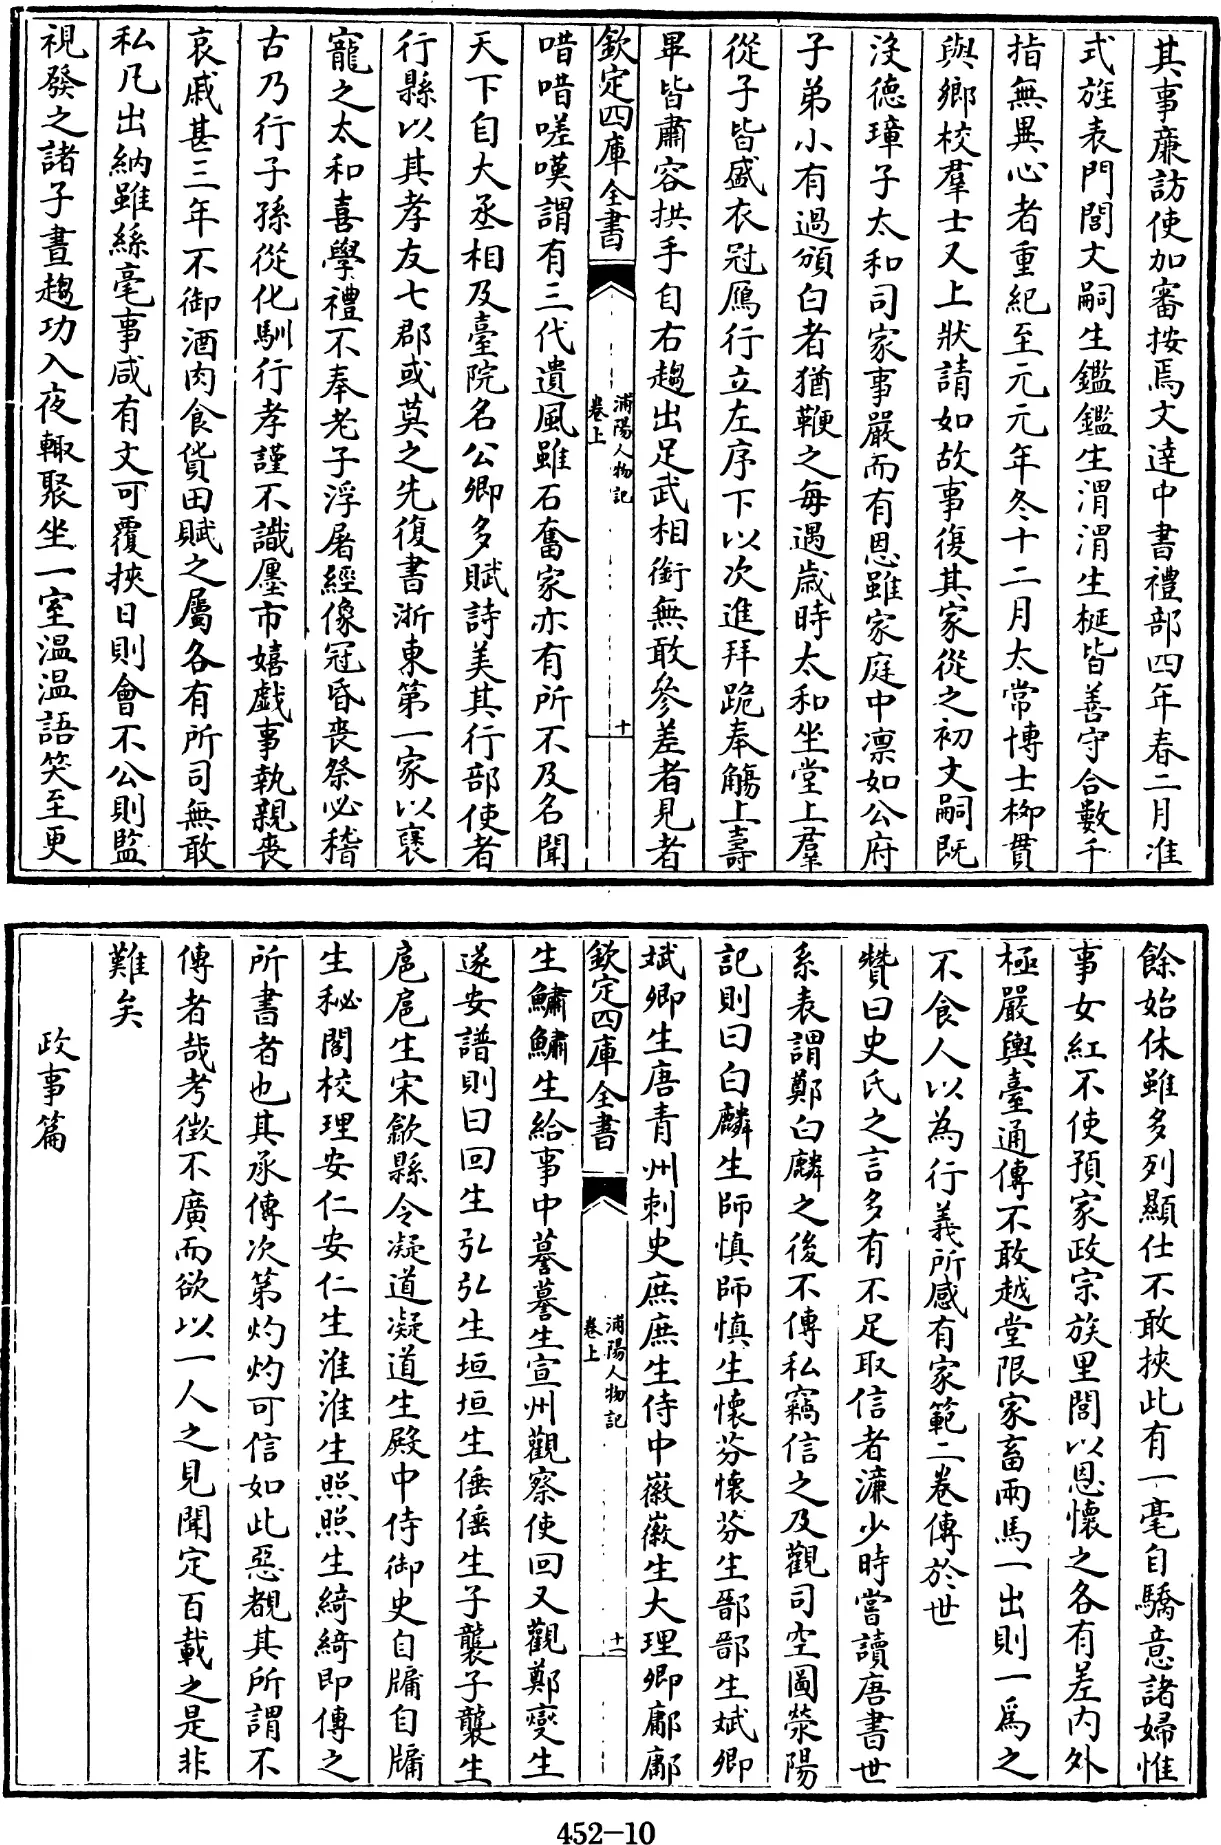 其事廉訪使加審按焉文達中書禮部四年春二月准
式旌表門閭文嗣生鑑鑑生渭渭生梃皆善守合數千
指無異心者重紀至元元年冬十二月太常博士柳貫
與鄉校羣士又上狀請如故事復其家從之初文嗣既
没德璋子太和司家事嚴而有恩雖家庭中凛如公府
子弟小有過頒白者猶鞭之每遇歲時太和坐堂上羣
從子皆盛衣冠鴈行立左序下以次進拜跪奉觴上壽
畢皆肅容拱手自右趨出足武相銜無敢參差者見者
欽定四庫全書
浦陽人物記
卷上
十
唶唶嗟嘆謂有三代遺風雖石奮家亦有所不及名聞
天下自大丞相及臺院名公卿多賦詩美其行部使者
行縣以其孝友七郡或莫之先復書浙東第一家以襃
寵之太和喜學禮不奉老子浮屠經像冠昏喪祭必稽
古乃行子孫從化馴行孝謹不識廛市嬉戲事執親喪
哀戚甚三年不御酒肉食貨田賦之屬各有所司無敢
私凡出納雖絲毫事咸有文可覆挾日則會不公則監
視發之諸子晝趨功入夜輙聚坐一室温温語笑至更
餘始休雖多列顯仕不敢挾此有一毫自驕意諸婦惟
事女紅不使預家政宗族里閭以恩懷之各有差内外
極嚴輿臺通傳不敢越堂限家畜兩馬一出則一爲之
不食人以為行義所感有家範二卷傳於世
贊曰史氏之言多有不足取信者濂少時嘗讀唐書世
系表謂鄭白麟之後不傳私竊信之及觀司空圖滎陽
記則曰白麟生師慎師慎生懷芬懷芬生鄑鄑生斌卿
斌卿生唐青州刺史庶庶生侍中徽徽生大理卿鄘鄘
欽定四庫全書
浦陽人物記
卷上
十一
生鱐鱐生給事中蕚蕚生宣州觀察使回又觀鄭燮生
遂安譜則曰回生弘弘生垣垣生倕倕生子襲子襲生
扈扈生宋歙縣令凝道凝道生殿中侍御史自牖自牖
生秘閣校理安仁安仁生淮淮生照照生綺綺即傳之
所書者也其承傳次第灼灼可信如此惡覩其所謂不
傳者哉考徵不廣而欲以一人之見聞定百載之是非
難矣
政事篇
452-10